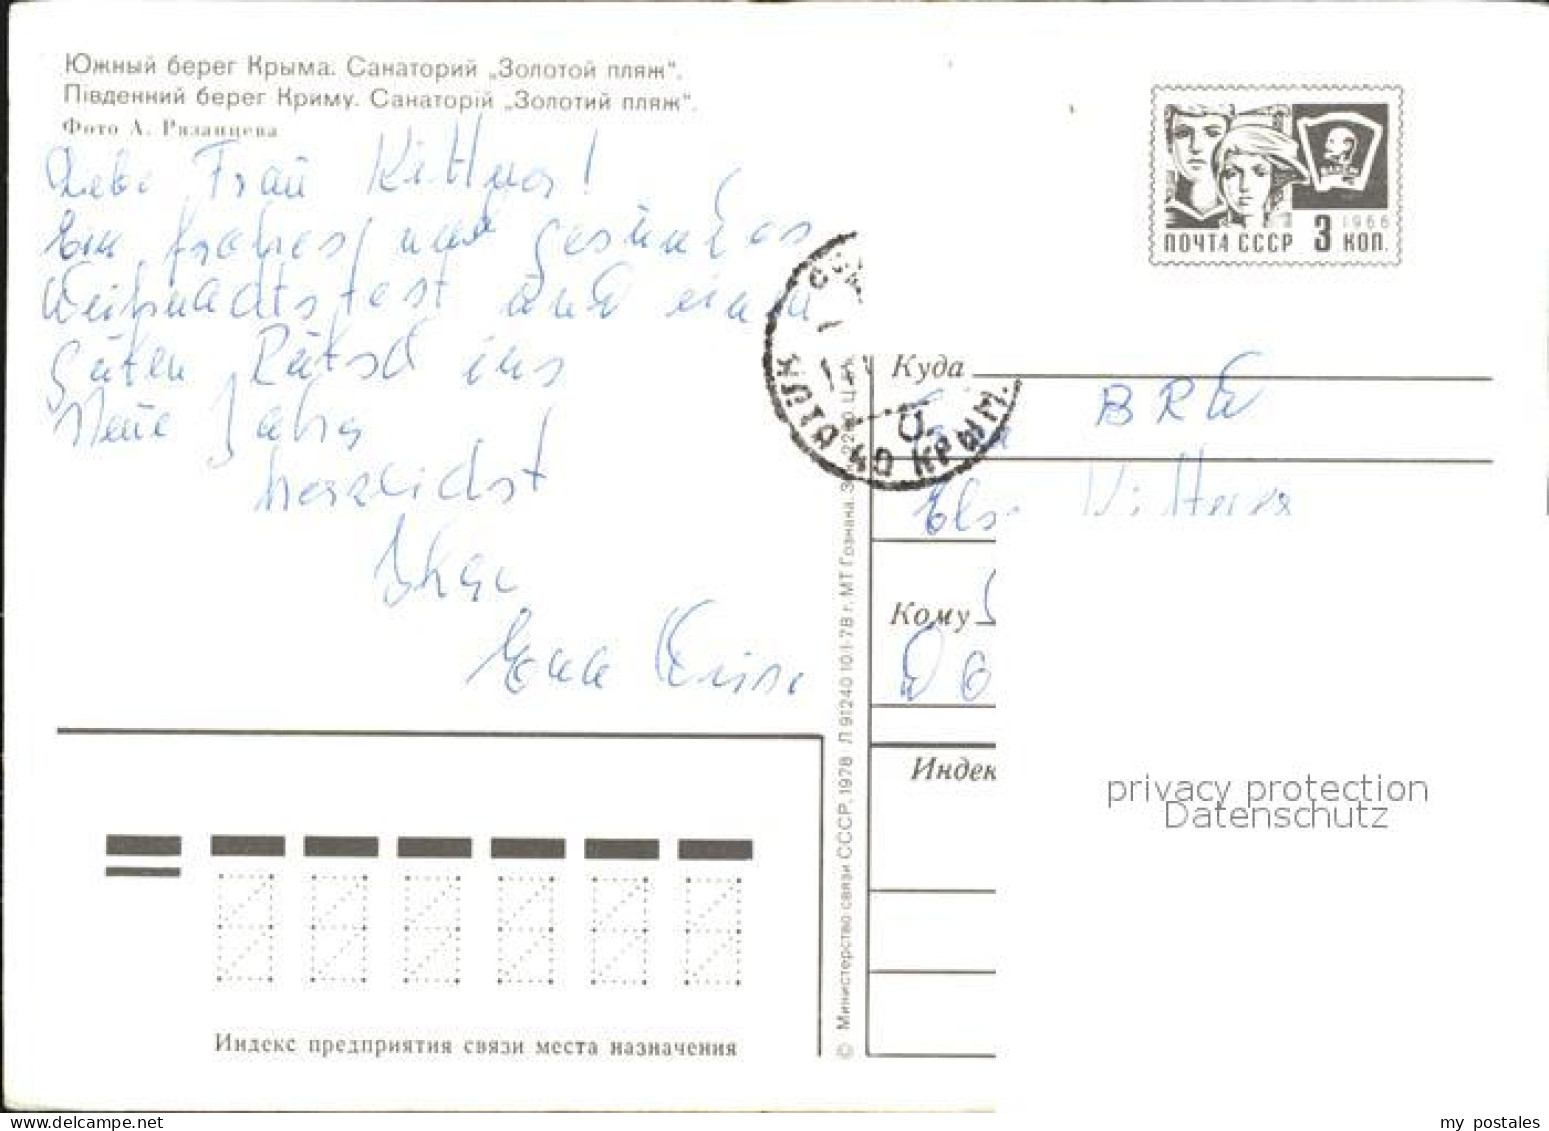 Южный берег Крыма. Санаторий „Золотой пляж“.
Південний берег Криму. Санаторій „Золотий пляж“.
Фото А. Рязанцева
Liebe Frau Kittner!
Ein frohes, und gesundes
Weihnachtsfest und einen
guten Rutsch ins
Neue Jahr
herzlichst
Ihre
ПОЧТА СССР 3 КОП.
1966
КРЫМ.
Куда
BRD
Kittner
Кому
D 6
Индек
© Министерство связи СССР, 1978 Л 91240 10/I-78 г. МТ Гознака. З
Индекс предприятия связи места назначения
privacy protection
Datenschutz
my postales